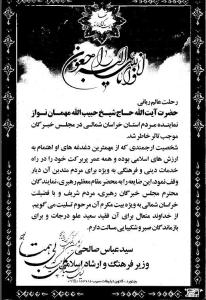 انا لله و انا الیه راجعون
رحلت عالم ربانی
حضرت آیت الله حاج شیخ حبیب الله مهمان نواز
نماینده مردم استان خراسان شمالی در مجلس خبرگان
موجب تاثر خاطر شد.
شخصیت ارجمندی که از مهمترین دغدغه های او اهتمام به
ارزش های اسلامی بوده و همه عمر پربرکت خود را در راه
خدمات دینی و فرهنگی به ویژه برای مردم متدین آن دیار
وقف نمود. این ضایعه را به محضر مقام معظم رهبری، نمایندگان
محترم مجلس خبرگان رهبری، مردم شریف و با فضیلت
خراسان شمالی به ویژه بیت مکرم آن مرحوم تسلیت می گویم.
از خداوند متعال برای آن فقید سعید علو درجات و برای
بازماندگان صبر و شکیبایی مسالت دارم.
سید عباس صالحی
وزیر فرهنگ و ارشاد اسلامی